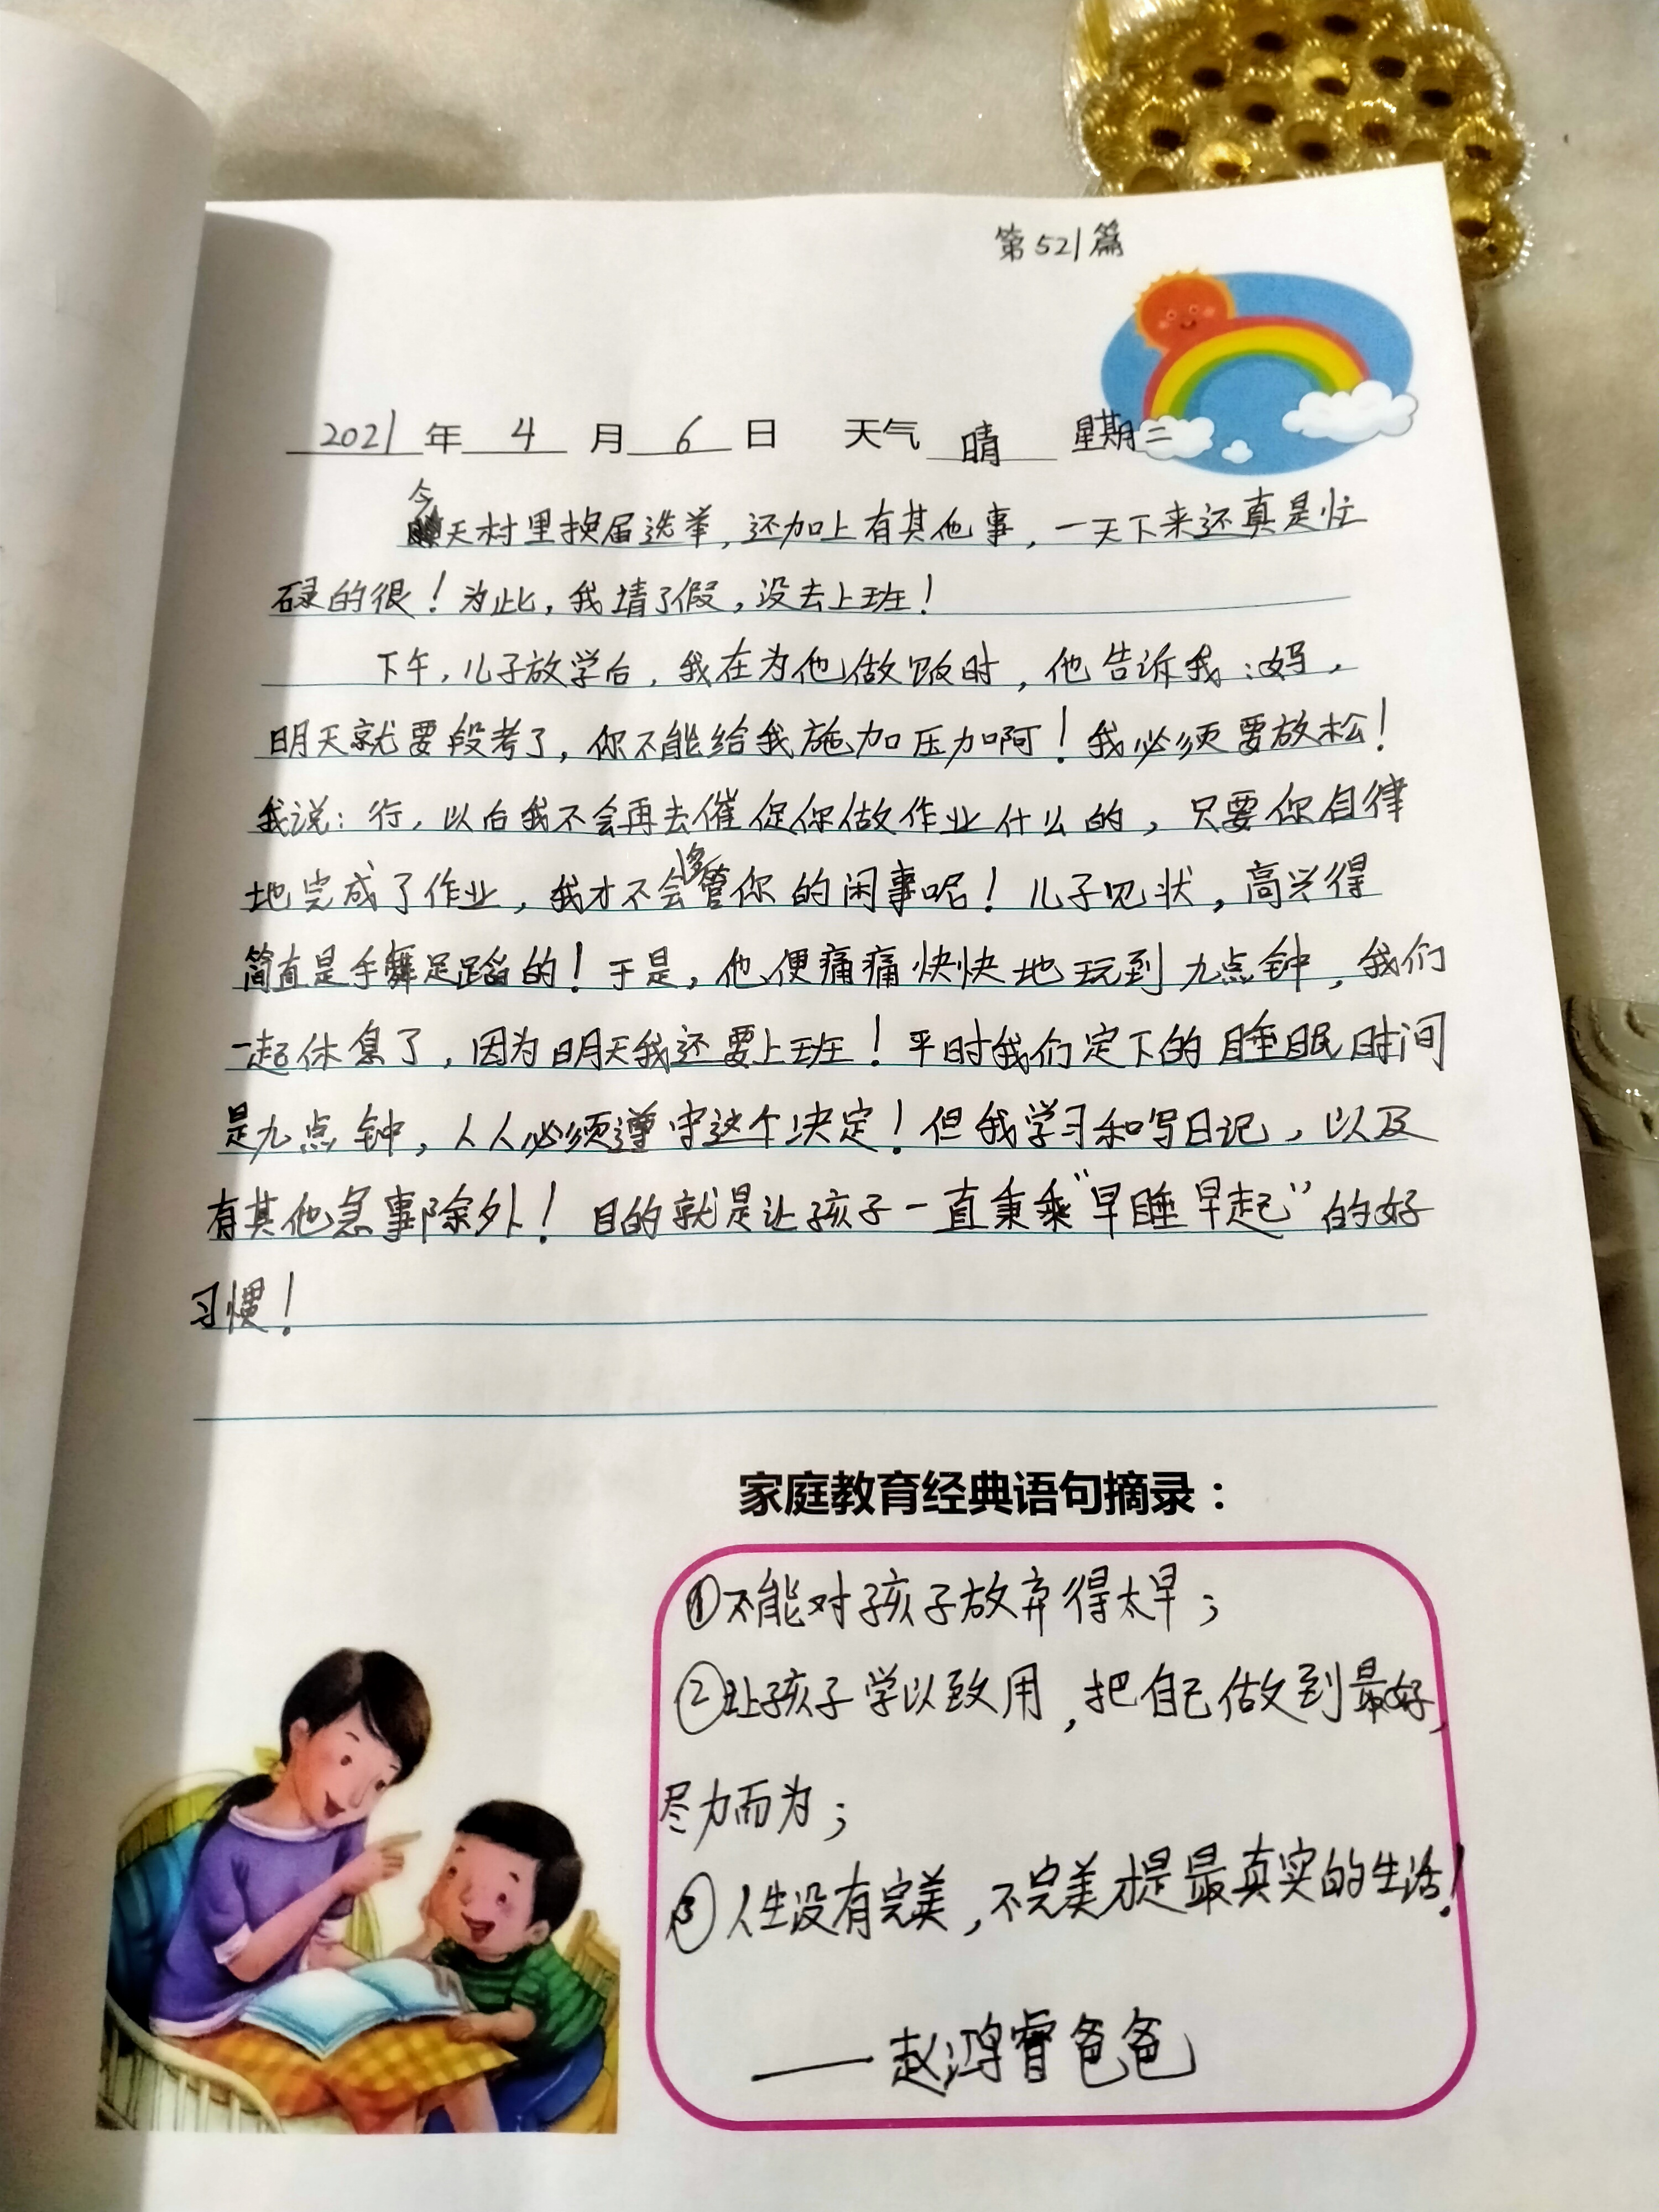 第521篇
2021年4月6日 天气 晴 星期二
今天村里换届选举,还加上有其他事,一天下来还真是忙
碌的很!为此,我请了假,没去上班!
下午,儿子放学后,我在为他做饭时,他告诉我:妈,
明天就要段考了,你不能给我施加压力啊!我必须要放松!
我说:行,以后我不会再去催促你做作业什么的,只要你自律
地完成了作业,我才不会多管你的闲事呢!儿子见状,高兴得
简直是手舞足蹈的!于是,他便痛痛快快地玩到九点钟,我们
一起休息了,因为明天我还要上班!平时我们定下的睡眠时间
是九点钟,人人必须遵守这个决定!但我学习和写日记,以及
有其他急事除外!目的就是让孩子一直秉乘“早睡早起”的好
习惯!
家庭教育经典语句摘录:
①不能对孩子放弃得太早;
②让孩子学以致用,把自己做到最好,
尽力而为;
③人生没有完美,不完美才是最真实的生活!
——赵鸿睿爸爸